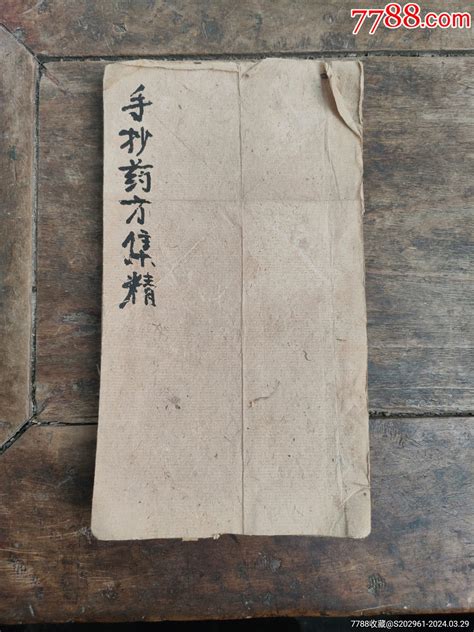 7788.com
手抄药方集精
7788收藏@S202961-2024.03.29